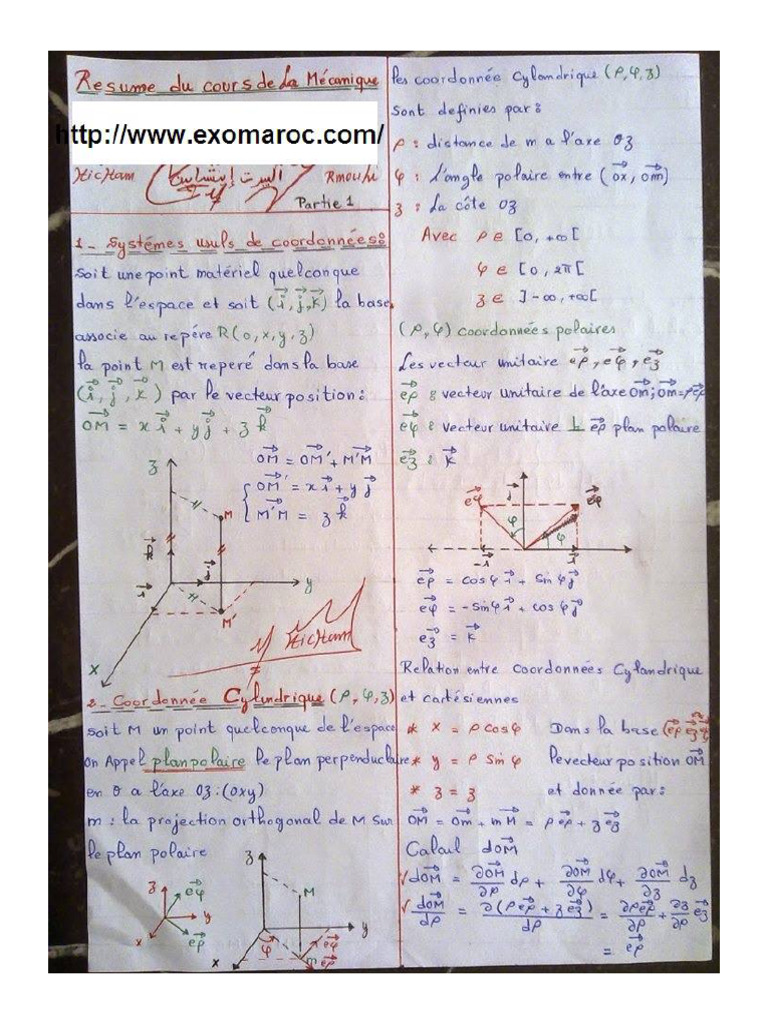 Resume du cours de La Mécanique
http://www.exomaroc.com/
Hicham
Rmouki
Partie 1
1- Systémes usuls de coordonnées:
soit une point matériel quelconque
dans l'espace et soit (i⃗, j⃗, k⃗) la base
associe au repére R(o,x,y,z)
la point M est reperé dans la base
(i⃗, j⃗, k⃗) par le vecteur position:
OM⃗ = x i⃗ + y j⃗ + z k⃗
OM⃗ = OM'⃗ + M'M⃗
OM'⃗ = x i⃗ + y j⃗
M'M⃗ = z k⃗
z
M
k⃗
i⃗
j⃗
y
M'
x
Hicham
2- Coordonnée Cylindrique (ρ, φ, z)
soit M un point quelconque de l'espace
on Appel plan polaire le plan perpendiculaire
en O a l'axe Oz : (oxy)
m : la projection orthogonal de M sur
le plan polaire
z
eφ⃗
y
x
eρ⃗
z
M
y
φ
x
m
eφ⃗
eρ⃗
les coordonnée Cylandrique (ρ, φ, z)
sont definies par:
ρ : distance de m a l'axe Oz
φ : L'angle polaire entre (ox⃗, om⃗)
z : La côte Oz
Avec ρ ∈ [0, +∞[
φ ∈ [0, 2π[
z ∈ ]-∞, +∞[
(ρ, φ) coordonnées polaires
Les vecteur unitaire eρ⃗, eφ⃗, ez⃗
eρ⃗ : vecteur unitaire de l'axe om⃗; om⃗ = ρeρ⃗
eφ⃗ : vecteur unitaire ⊥ eρ⃗ plan polaire
ez⃗ : k⃗
eφ⃗
j⃗
eφ⃗
φ
φ
-i⃗
i⃗
eρ⃗ = cosφ i⃗ + Sinφ j⃗
eφ⃗ = -Sinφ i⃗ + cosφ j⃗
ez⃗ = k⃗
Relation entre Coordonnées Cylandrique
et cartésiennes
* x = ρ cosφ Dans la base (eρ⃗ eφ⃗ ez⃗)
* y = ρ Sinφ le vecteur position OM⃗
* z = z et donnée par:
OM⃗ = Om⃗ + mM⃗ = ρ eρ⃗ + z ez⃗
Calcul dOM⃗
√ dOM⃗ = ∂OM⃗/∂ρ dρ + ∂OM⃗/∂φ dφ + ∂OM⃗/∂z dz
√ dOM⃗/dρ = ∂(ρeρ⃗ + zez⃗)/dρ = ∂ρeρ⃗/∂ρ + ∂z/∂ρ ez⃗
= eρ⃗